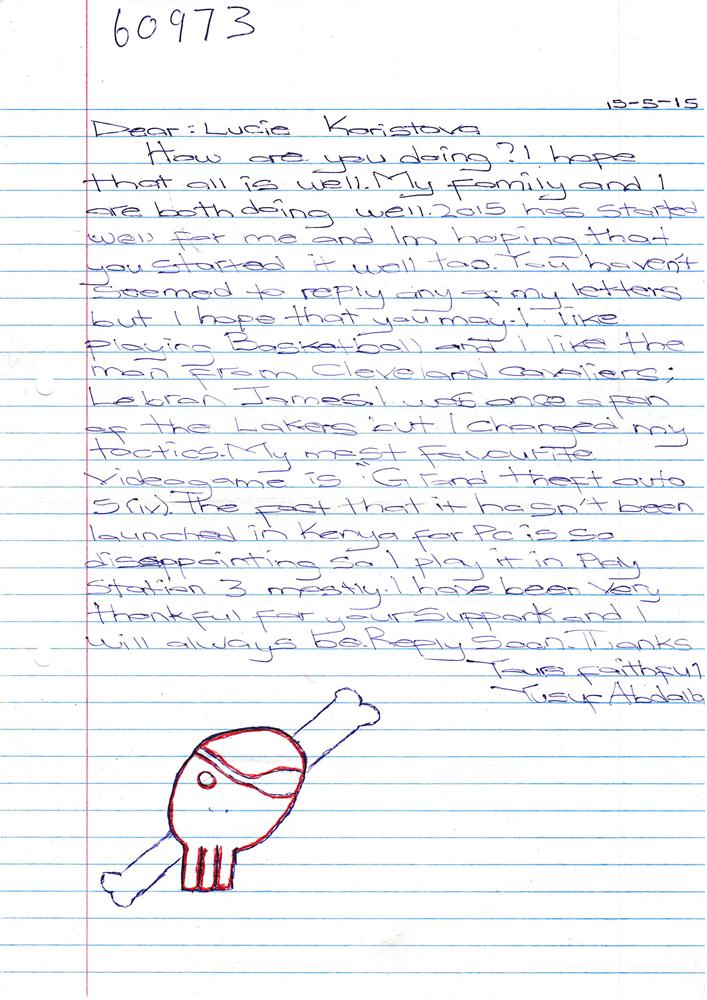 60973
15-5-15
Dear: Lucie Koristova
How are you doing? I hope
that all is well. My family and I
are both doing well. 2015 has started
well for me and Im hoping that
you started it well too. You haven't
seemed to reply any of my letters
but I hope that you may. I like
playing Basketball and i like the
man from Cleveland cavaliers;
Lebran James. I was once a fan
of the Lakers but I changed my
tactics. My most favourite
videogame is Grand theft auto
5(iv). The fact that it hasn't been
launched in Kenya for Pc is so
disappointing so I play it in Play
Station 3 mostly. I have been very
thankful for your support and I
will always be. Reply Soon. Thanks
Yours faithful
Yusuf Abdalla